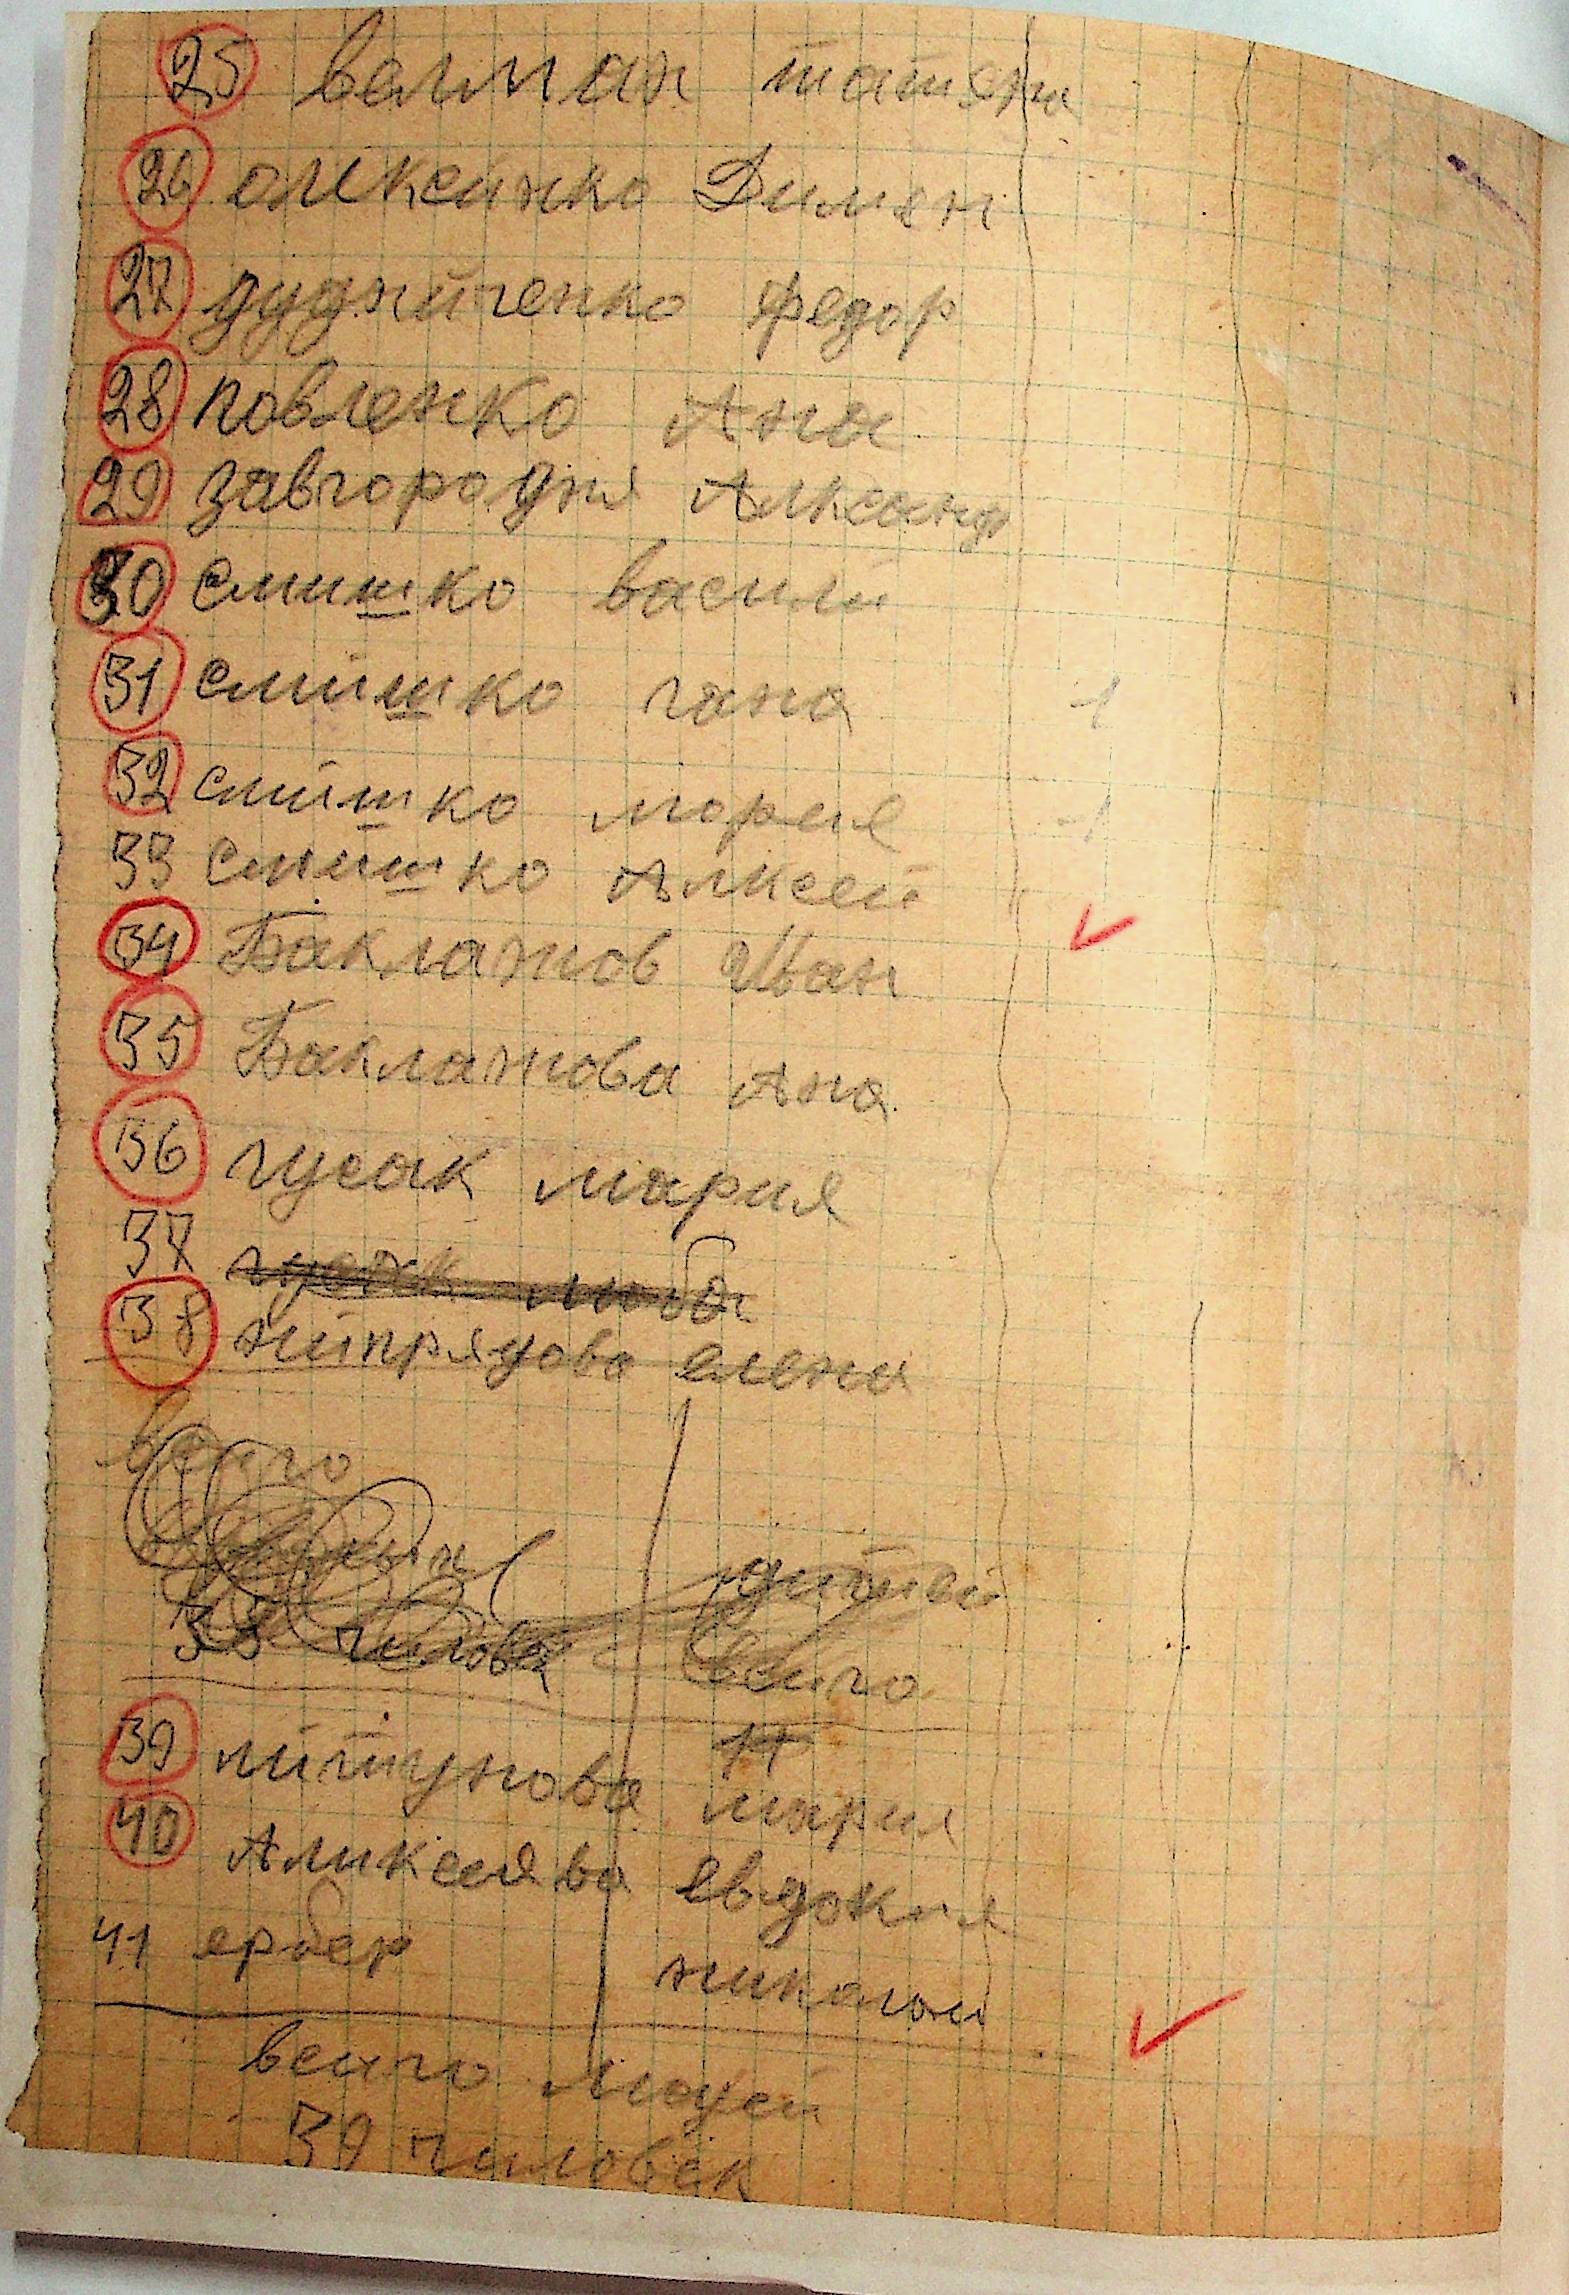 25 валман татяна
26 олексеинко Димян
27 дудниченко федор
28 повленко Ана
29 завгородня Алксандр
30 слишко васили
31 слишко гана -1
32 слишко мория -1
33 слишко Алксей
34 Бакланов Иван
35 Бакланова Ана
36 гусак мария
37 гусак люба
38 нипрядова елена
всиго
дитей
33 чилове всиго
17
39 питунова мария
40 Аликсеява Евдокия
41 ербер николаи
всиго людей
39 чиловек